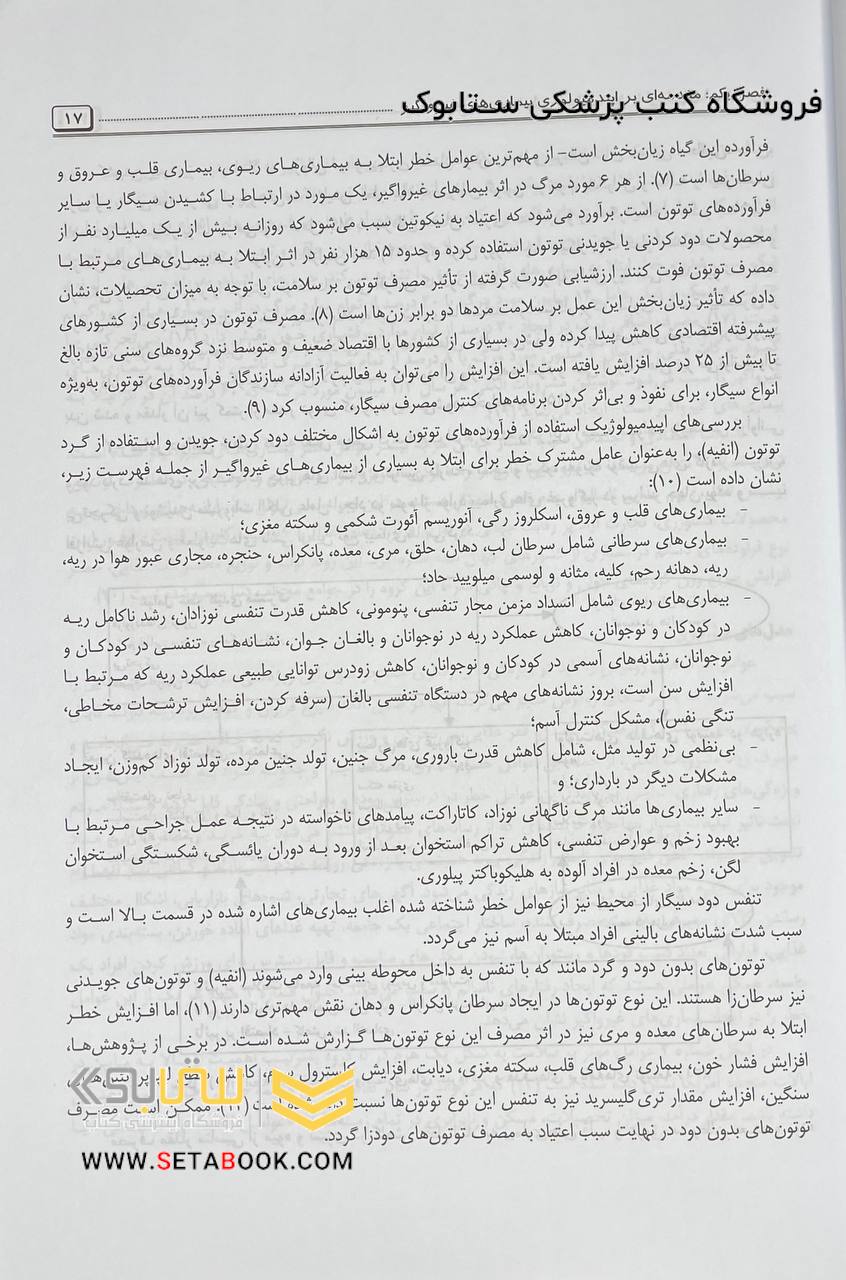 فروشگاه کتب پزشکی ستابوک
۱۷
فرآورده این گیاه زیان‌بخش است- از مهم‌ترین عوامل خطر ابتلا به بیماری‌های ریوی، بیماری قلب و عروق و
سرطان‌ها است (۷). از هر ۶ مورد مرگ در اثر بیمارهای غیرواگیر، یک مورد در ارتباط با کشیدن سیگار یا سایر
فرآورده‌های توتون است. برآورد می‌شود که اعتیاد به نیکوتین سبب می‌شود که روزانه بیش از یک میلیارد نفر از
محصولات دود کردنی یا جویدنی توتون استفاده کرده و حدود ۱۵ هزار نفر در اثر ابتلا به بیماری‌های مرتبط با
مصرف توتون فوت کنند. ارزشیابی صورت گرفته از تأثیر مصرف توتون بر سلامت، با توجه به میزان تحصیلات، نشان
داده که تأثیر زیان‌بخش این عمل بر سلامت مردها دو برابر زن‌ها است (۸). مصرف توتون در بسیاری از کشورهای
پیشرفته اقتصادی کاهش پیدا کرده ولی در بسیاری از کشورها با اقتصاد ضعیف و متوسط نزد گروه‌های سنی تازه بالغ
تا بیش از ۲۵ درصد افزایش یافته است. این افزایش را می‌توان به فعالیت آزادانه سازندگان فرآورده‌های توتون، به‌ویژه
انواع سیگار، برای نفوذ و بی‌اثر کردن برنامه‌های کنترل مصرف سیگار، منسوب کرد (۹).
بررسی‌های اپیدمیولوژیک استفاده از فرآورده‌های توتون به اشکال مختلف دود کردن، جویدن و استفاده از گرد
توتون (انفیه)، را به‌عنوان عامل مشترک خطر برای ابتلا به بسیاری از بیماری‌های غیرواگیر از جمله فهرست زیر،
نشان داده است (۱۰):
- بیماری‌های قلب و عروق، اسکلروز رگی، آنوریسم آئورت شکمی و سکته مغزی؛
- بیماری‌های سرطانی شامل سرطان لب، دهان، حلق، مری، معده، پانکراس، حنجره، مجاری عبور هوا در ریه،
ریه، دهانه رحم، کلیه، مثانه و لوسمی میلویید حاد؛
- بیماری‌های ریوی شامل انسداد مزمن مجار تنفسی، پنومونی، کاهش قدرت تنفسی نوزادان، رشد ناکامل ریه
در کودکان و نوجوانان، کاهش عملکرد ریه در نوجوانان و بالغان جوان، نشانه‌های تنفسی در کودکان و
نوجوانان، نشانه‌های آسمی در کودکان و نوجوانان، کاهش زودرس توانایی طبیعی عملکرد ریه که مرتبط با
افزایش سن است، بروز نشانه‌های مهم در دستگاه تنفسی بالغان (سرفه کردن، افزایش ترشحات مخاطی،
تنگی نفس)، مشکل کنترل آسم؛
- بی‌نظمی در تولید مثل، شامل کاهش قدرت باروری، مرگ جنین، تولد جنین مرده، تولد نوزاد کم‌وزن، ایجاد
مشکلات دیگر در بارداری؛ و
- سایر بیماری‌ها مانند مرگ ناگهانی نوزاد، کاتاراکت، پیامدهای ناخواسته در نتیجه عمل جراحی مرتبط با
بهبود زخم و عوارض تنفسی، کاهش تراکم استخوان بعد از ورود به دوران یائسگی، شکستگی استخوان
لگن، زخم معده در افراد آلوده به هلیکوباکتر پیلوری.
تنفس دود سیگار از محیط نیز از عوامل خطر شناخته شده اغلب بیماری‌های اشاره شده در قسمت بالا است و
سبب شدت نشانه‌های بالینی افراد مبتلا به آسم نیز می‌گردد.
توتون‌های بدون دود و گرد مانند که با تنفس به داخل محوطه بینی وارد می‌شوند (انفیه) و توتون‌های جویدنی
نیز سرطان‌زا هستند. این نوع توتون‌ها در ایجاد سرطان پانکراس و دهان نقش مهم‌تری دارند (۱۱)، اما افزایش خطر
ابتلا به سرطان‌های معده و مری نیز در اثر مصرف این نوع توتون‌ها گزارش شده است. در برخی از پژوهش‌ها،
افزایش فشار خون، بیماری رگ‌های قلب، سکته مغزی، دیابت، افزایش کلسترول کاهش
سنگین، افزایش مقدار تری‌گلیسرید نیز به تنفس این نوع توتون‌ها نسبت است ممکن است مصرف
توتون‌های بدون دود در نهایت سبب اعتیاد به مصرف توتون‌های دودزا گردد.
ستابوک
فروشگاه اینترنتی کتاب
WWW.SETABOOK.COM